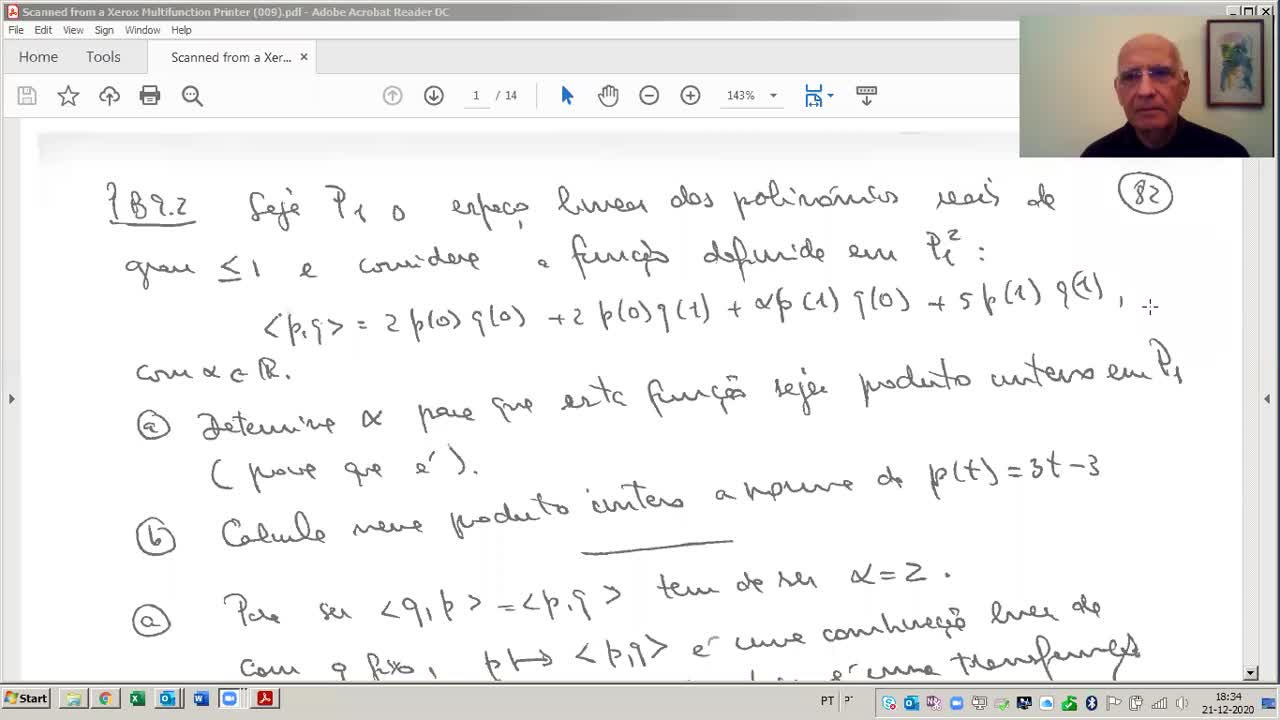 Scanned from a Xerox Multifunction Printer (009).pdf - Adobe Acrobat Reader DC
File Edit View Sign Window Help
Home Tools Scanned from a Xer... ×
1 / 14 143%
1B9.2 Seja P₁ o espaço linear dos polinómios reais de (82)
grau ≤1 e considere a função definida em P₁²:
<p,q> = 2 p(0) q(0) + 2 p(0) q(1) + αp(1) q(0) + 5 p(1) q(1),
com α ∈ ℝ.
(a) Determine α para que esta função seja produto interno em P₁
(prove que é).
(b) Calcule nesse produto interno a norma de p(t) = 3t-3
(a) Para ser <q,p> = <p,q> tem de ser α = 2.
Com q fixo, p↦ <p,q> é uma combinação linear de
é uma transformação
Start PT 18:34
21-12-2020